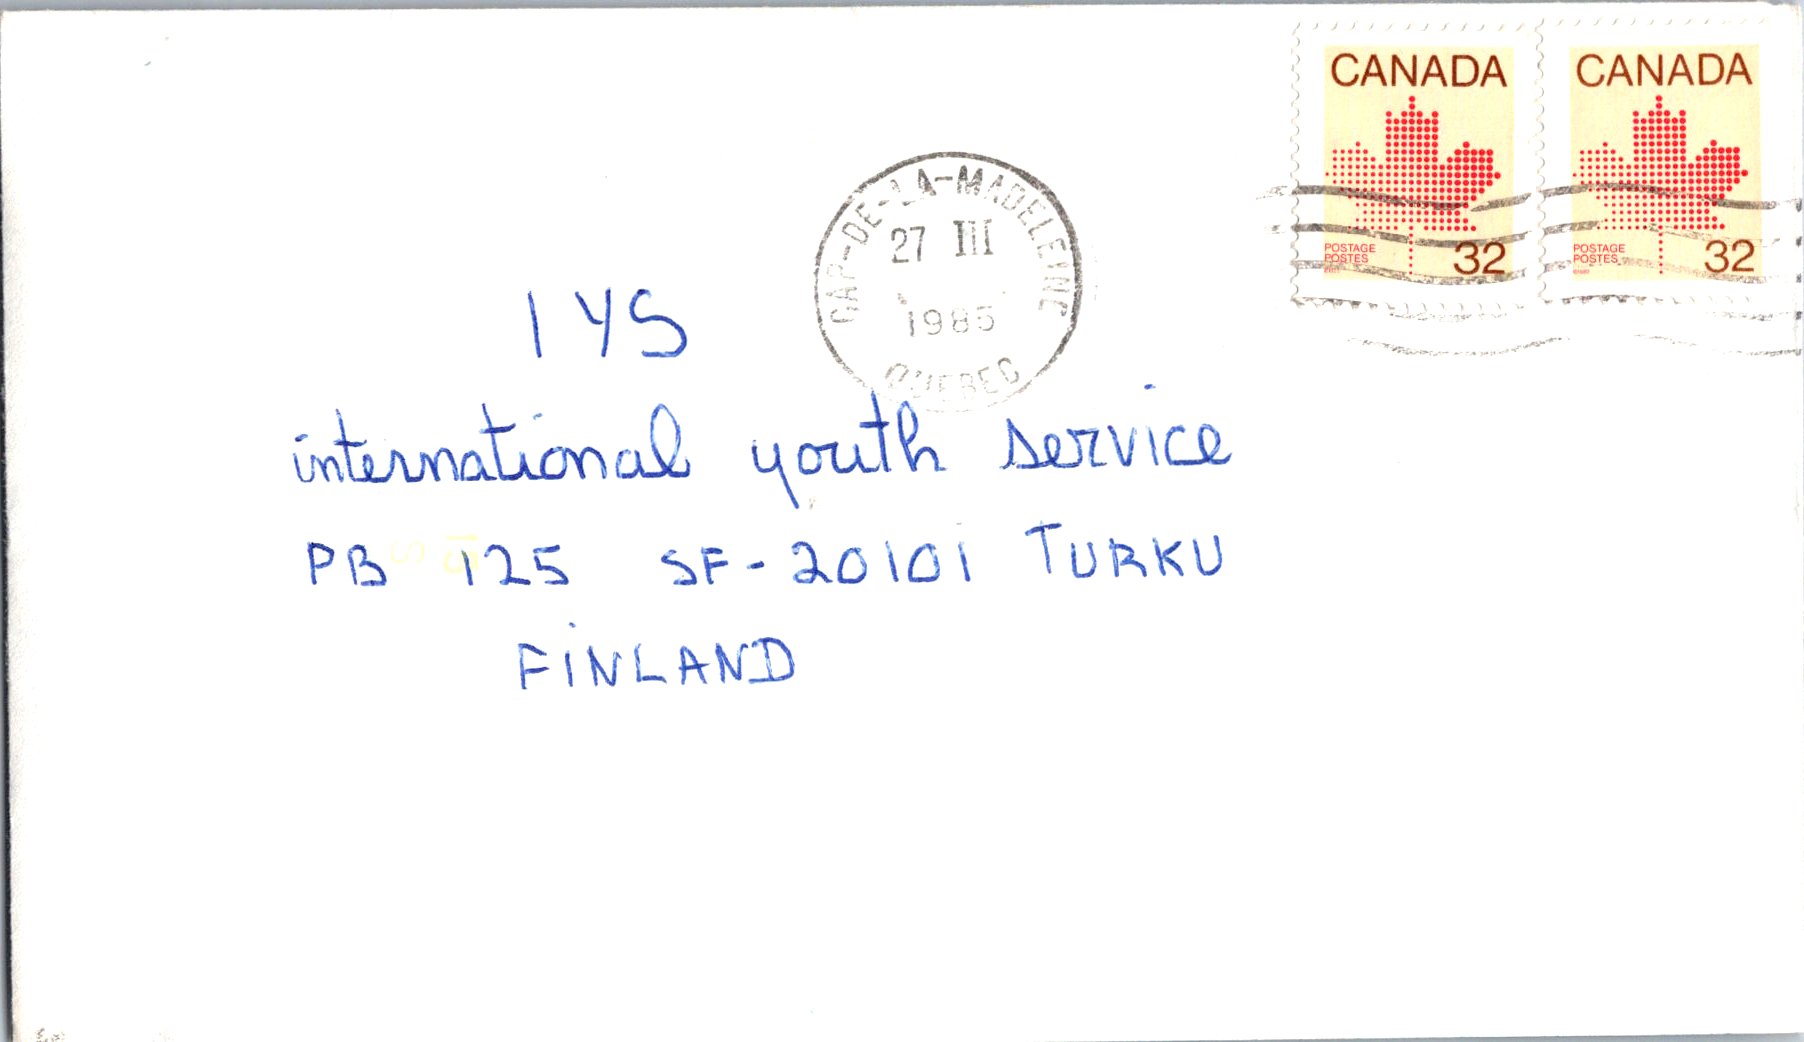 CANADA CANADA
POSTAGE POSTAGE
POSTES POSTES
32 32
CAP-DE-LA-MADELEINE
27 III
1985
QUEBEC
IYS
international youth service
PB 125 SF-20101 TURKU
FINLAND